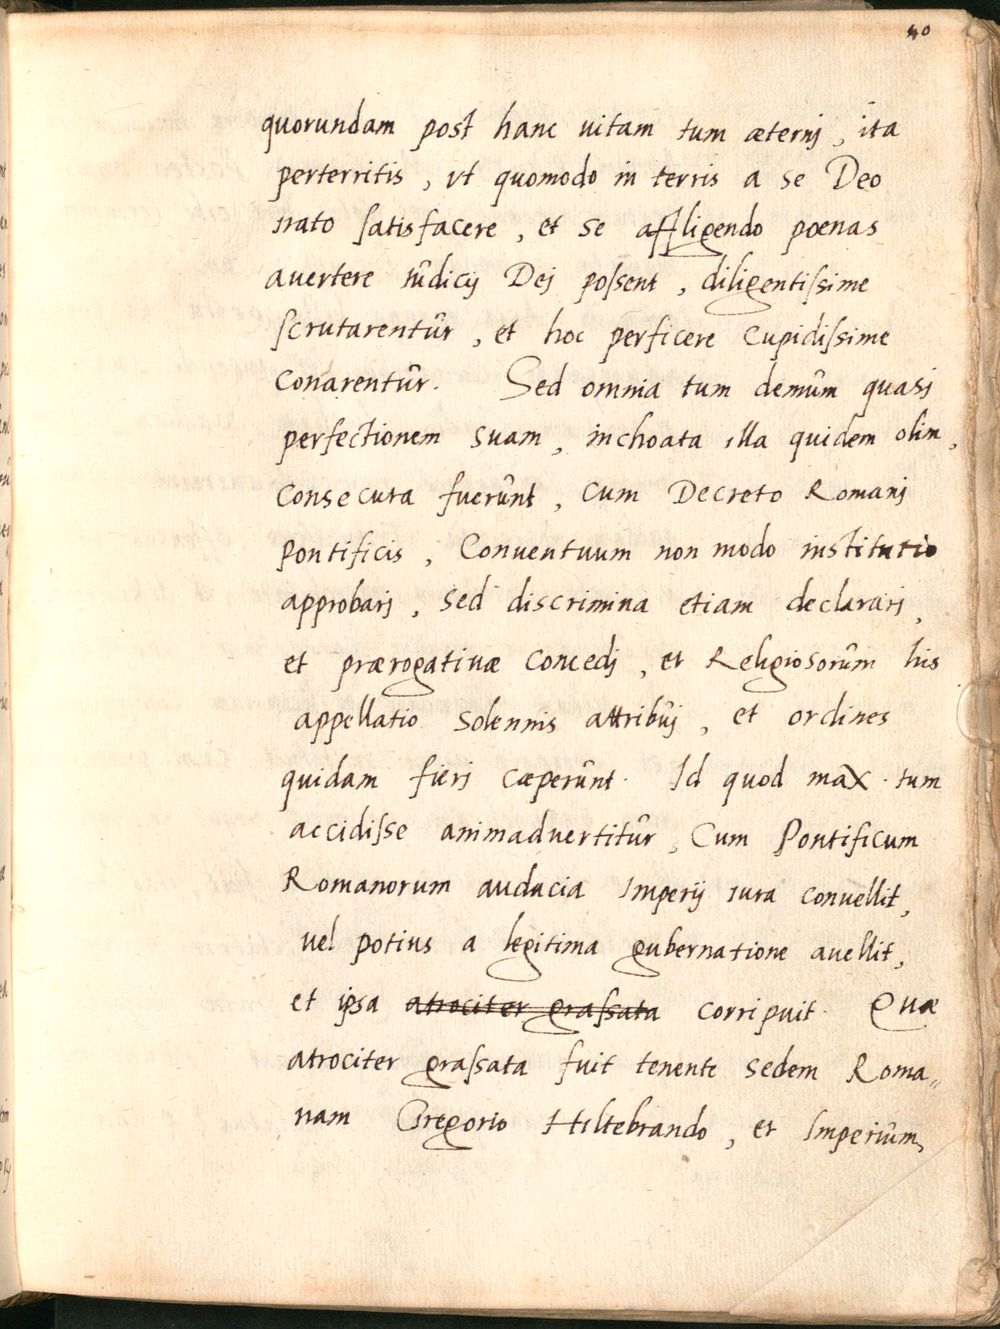 40
quorundam post hanc uitam tum æternj, ita
perterritis, vt quomodo in terris a se Deo
irato satisfacere, et se affligendo poenas
auertere iûdicij Dej possent, diligentissime
scrutarentûr, et hoc perficere cupidissime
conarentûr. Sed omnia tum demûm quasj
perfectionem suam, inchoata illa quidem olim,
consecuta fuerûnt, cum Decreto Romanj
Pontificis, Conuentuum non modo institutio
approbarj, sed discrimina etiam declararj,
et prærogatiuæ concedj, et Religiosorûm his
appellatio solennis attribûj, et ordines
quidam fierj cæperûnt. Id quod max. tum
accidisse animaduertitûr, Cum Pontificum
Romanorum audacia Imperij iura conuellit,
uel potius a legitima gubernatione auellit,
et ipsa atrociter grassata corripuit. Quæ
atrociter grassata fuit tenente sedem Roma„
nam Gregorio Hiltebrando, et Imperiûm,